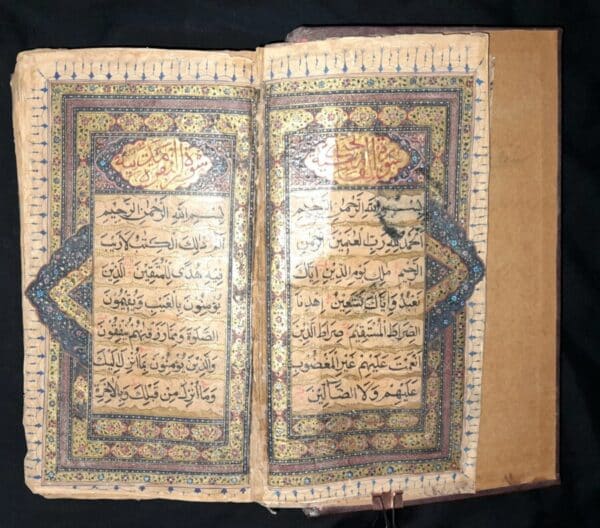 سورة الفاتحة
بسم الله الرحمن الرحيم
الحمد لله رب العلمين الرحمن
الرحيم ملك يوم الدين اياك
نعبد واياك نستعين اهدنا
الصراط المستقيم صراط الذين
انعمت عليهم غير المغضوب
عليهم ولا الضالين
سورة البقرة مدنية
بسم الله الرحمن الرحيم
الم ذلك الكتب لاريب
فيه هدى للمتقين الذين
يؤمنون بالغيب ويقيمون
الصلوة ومما رزقنهم ينفقون
والذين يؤمنون بما انزل اليك
وما انزل من قبلك وبالاخرة